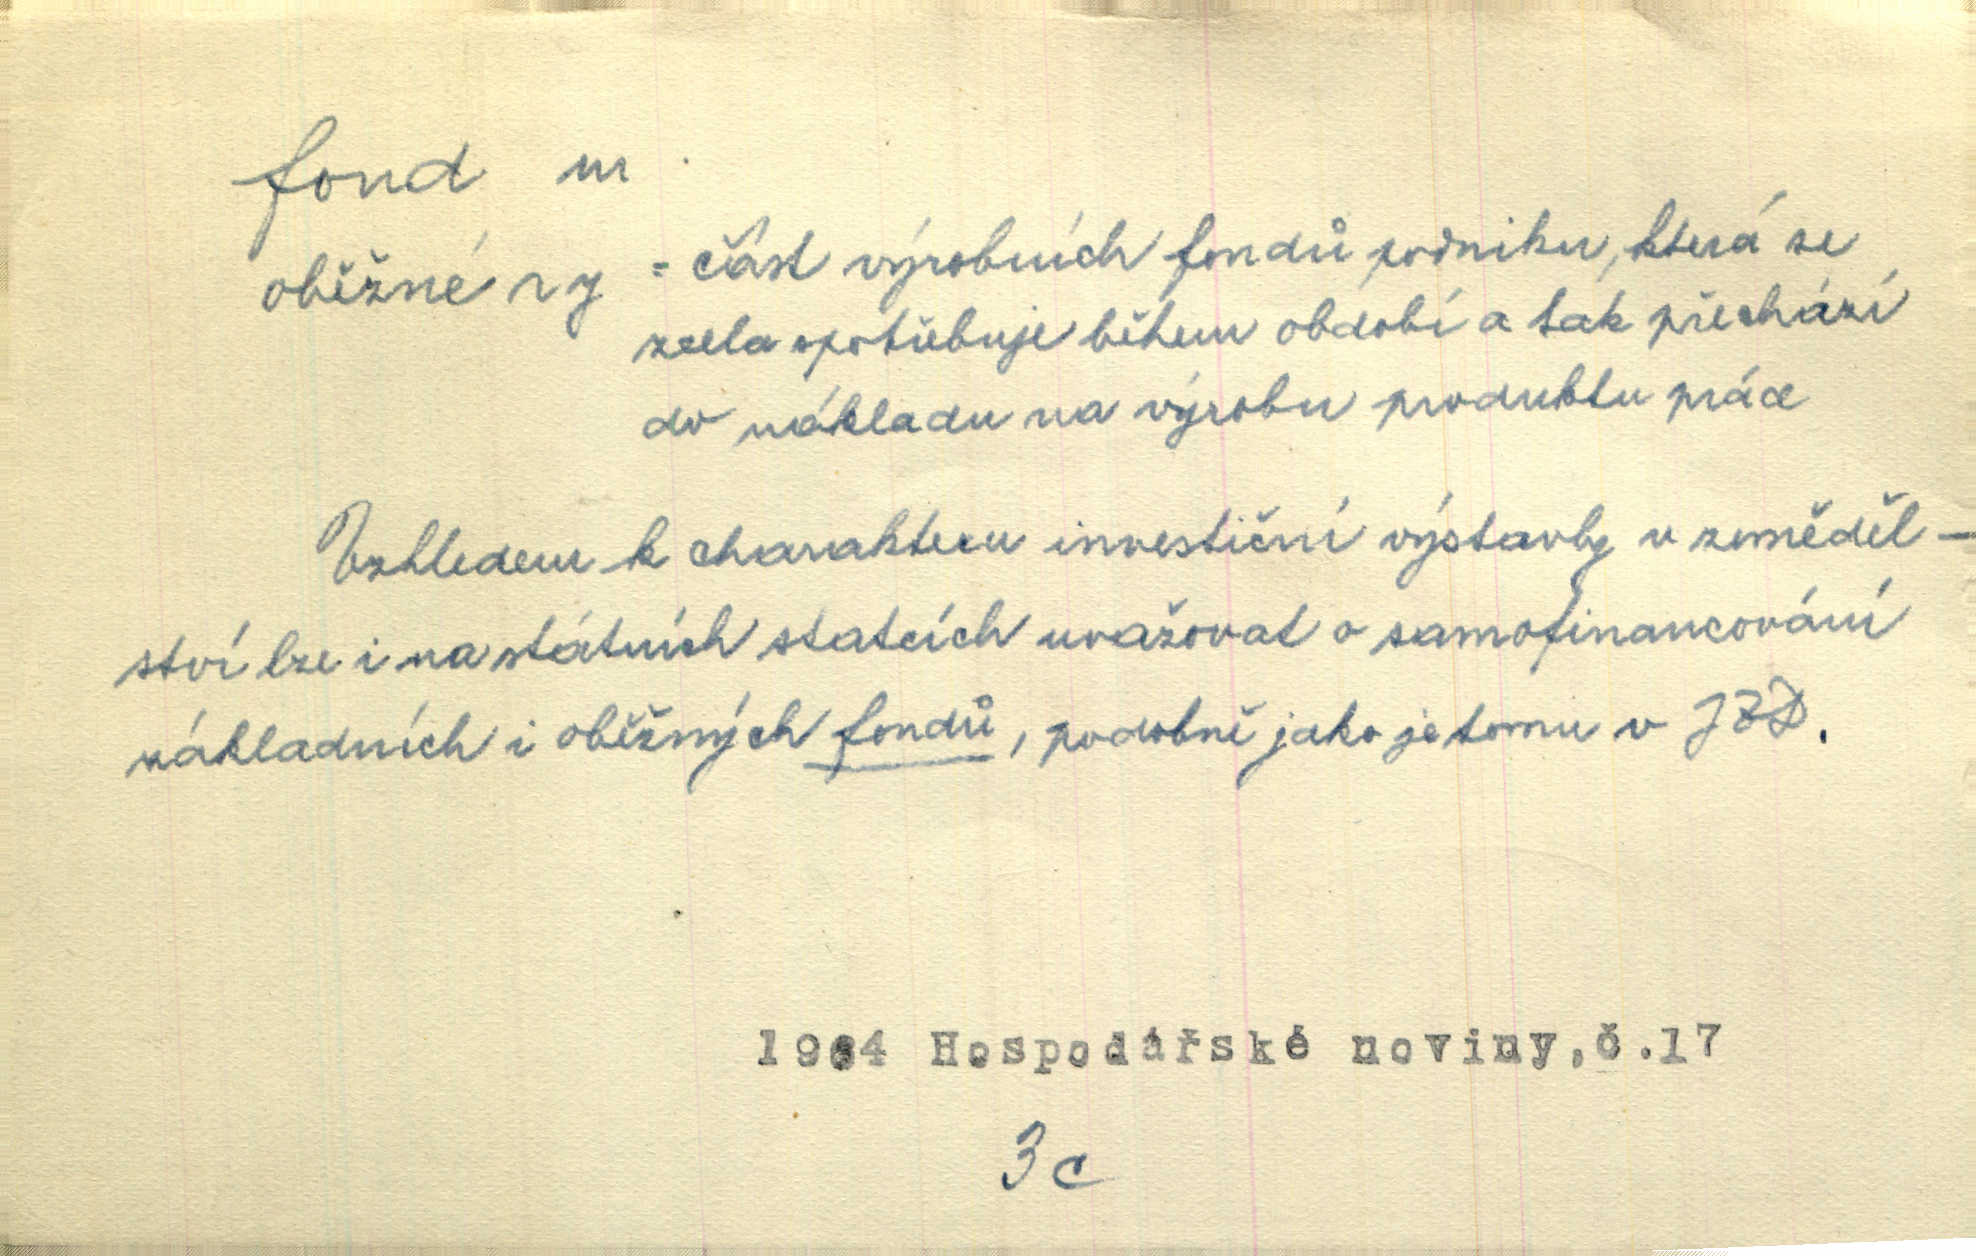 fond m
oběžné ~y = část výrobních fondů podniku, která se
zcela spotřebuje během období a tak přechází
do nákladu na výrobu produktu práce
Vzhledem k charakteru investiční výstavby v zeměděl-
ství lze i na státních statcích uvažovat o samofinancování
nákladních i oběžných fondů, podobně jako je tomu v JZD.
1964 Hospodářské noviny, č.17
3c